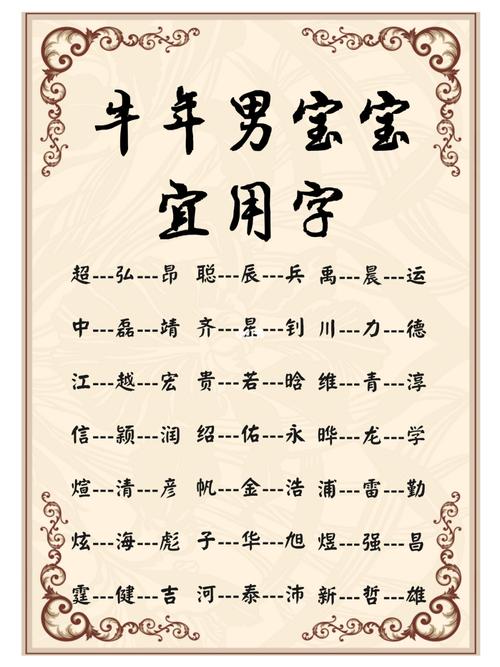 牛年男宝宝
宜用字
超---弘---昂 聪---辰---兵 禹---晨---运
中---磊---靖 齐---星---钊 川---力---德
江---越---宏 贵---若---晗 维---青---淳
信---颖---润 绍---佑---永 晔---龙---学
煊---清---彦 帆---金---浩 浦---雷---勤
炫---海---彪 子---华---旭 煜---强---昌
霆---健---吉 河---泰---沛 新---哲---雄